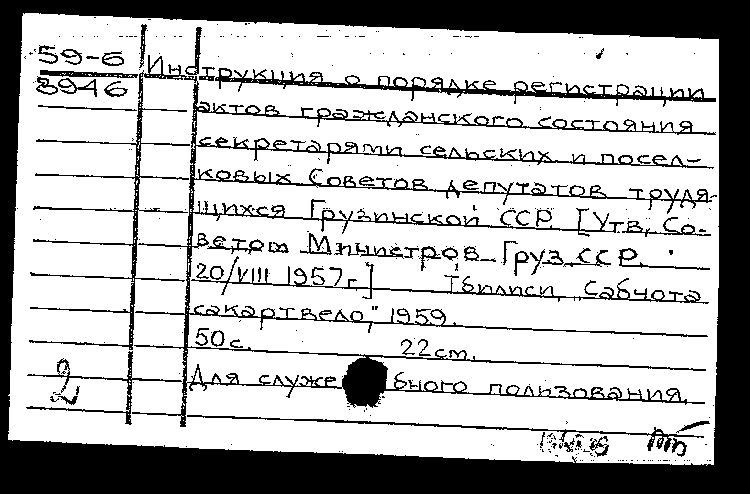 59-6
3946
Инструкция о порядке регистрации
актов гражданского состояния
секретарями сельских и посел-
ковых Советов депутатов трудя-
щихся Грузинской ССР. [Утв. Со-
ветом Министров Груз.ССР.
20/VIII 1957г.] Тбилиси, „Сабчота
сакартвело", 1959.
50с. 22см.
Для служебного пользования.
2